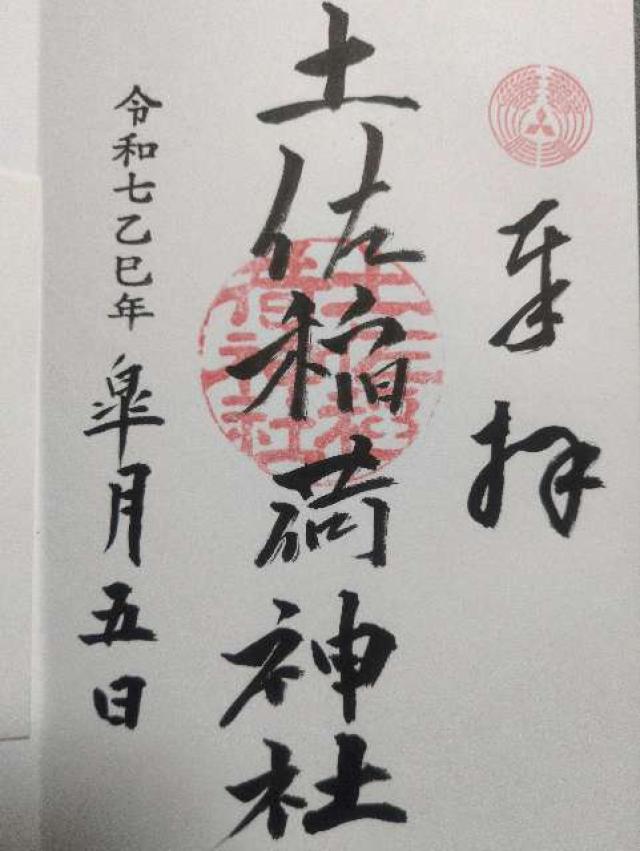 奉拝
土佐稲荷神社
令和七乙巳年皐月五日